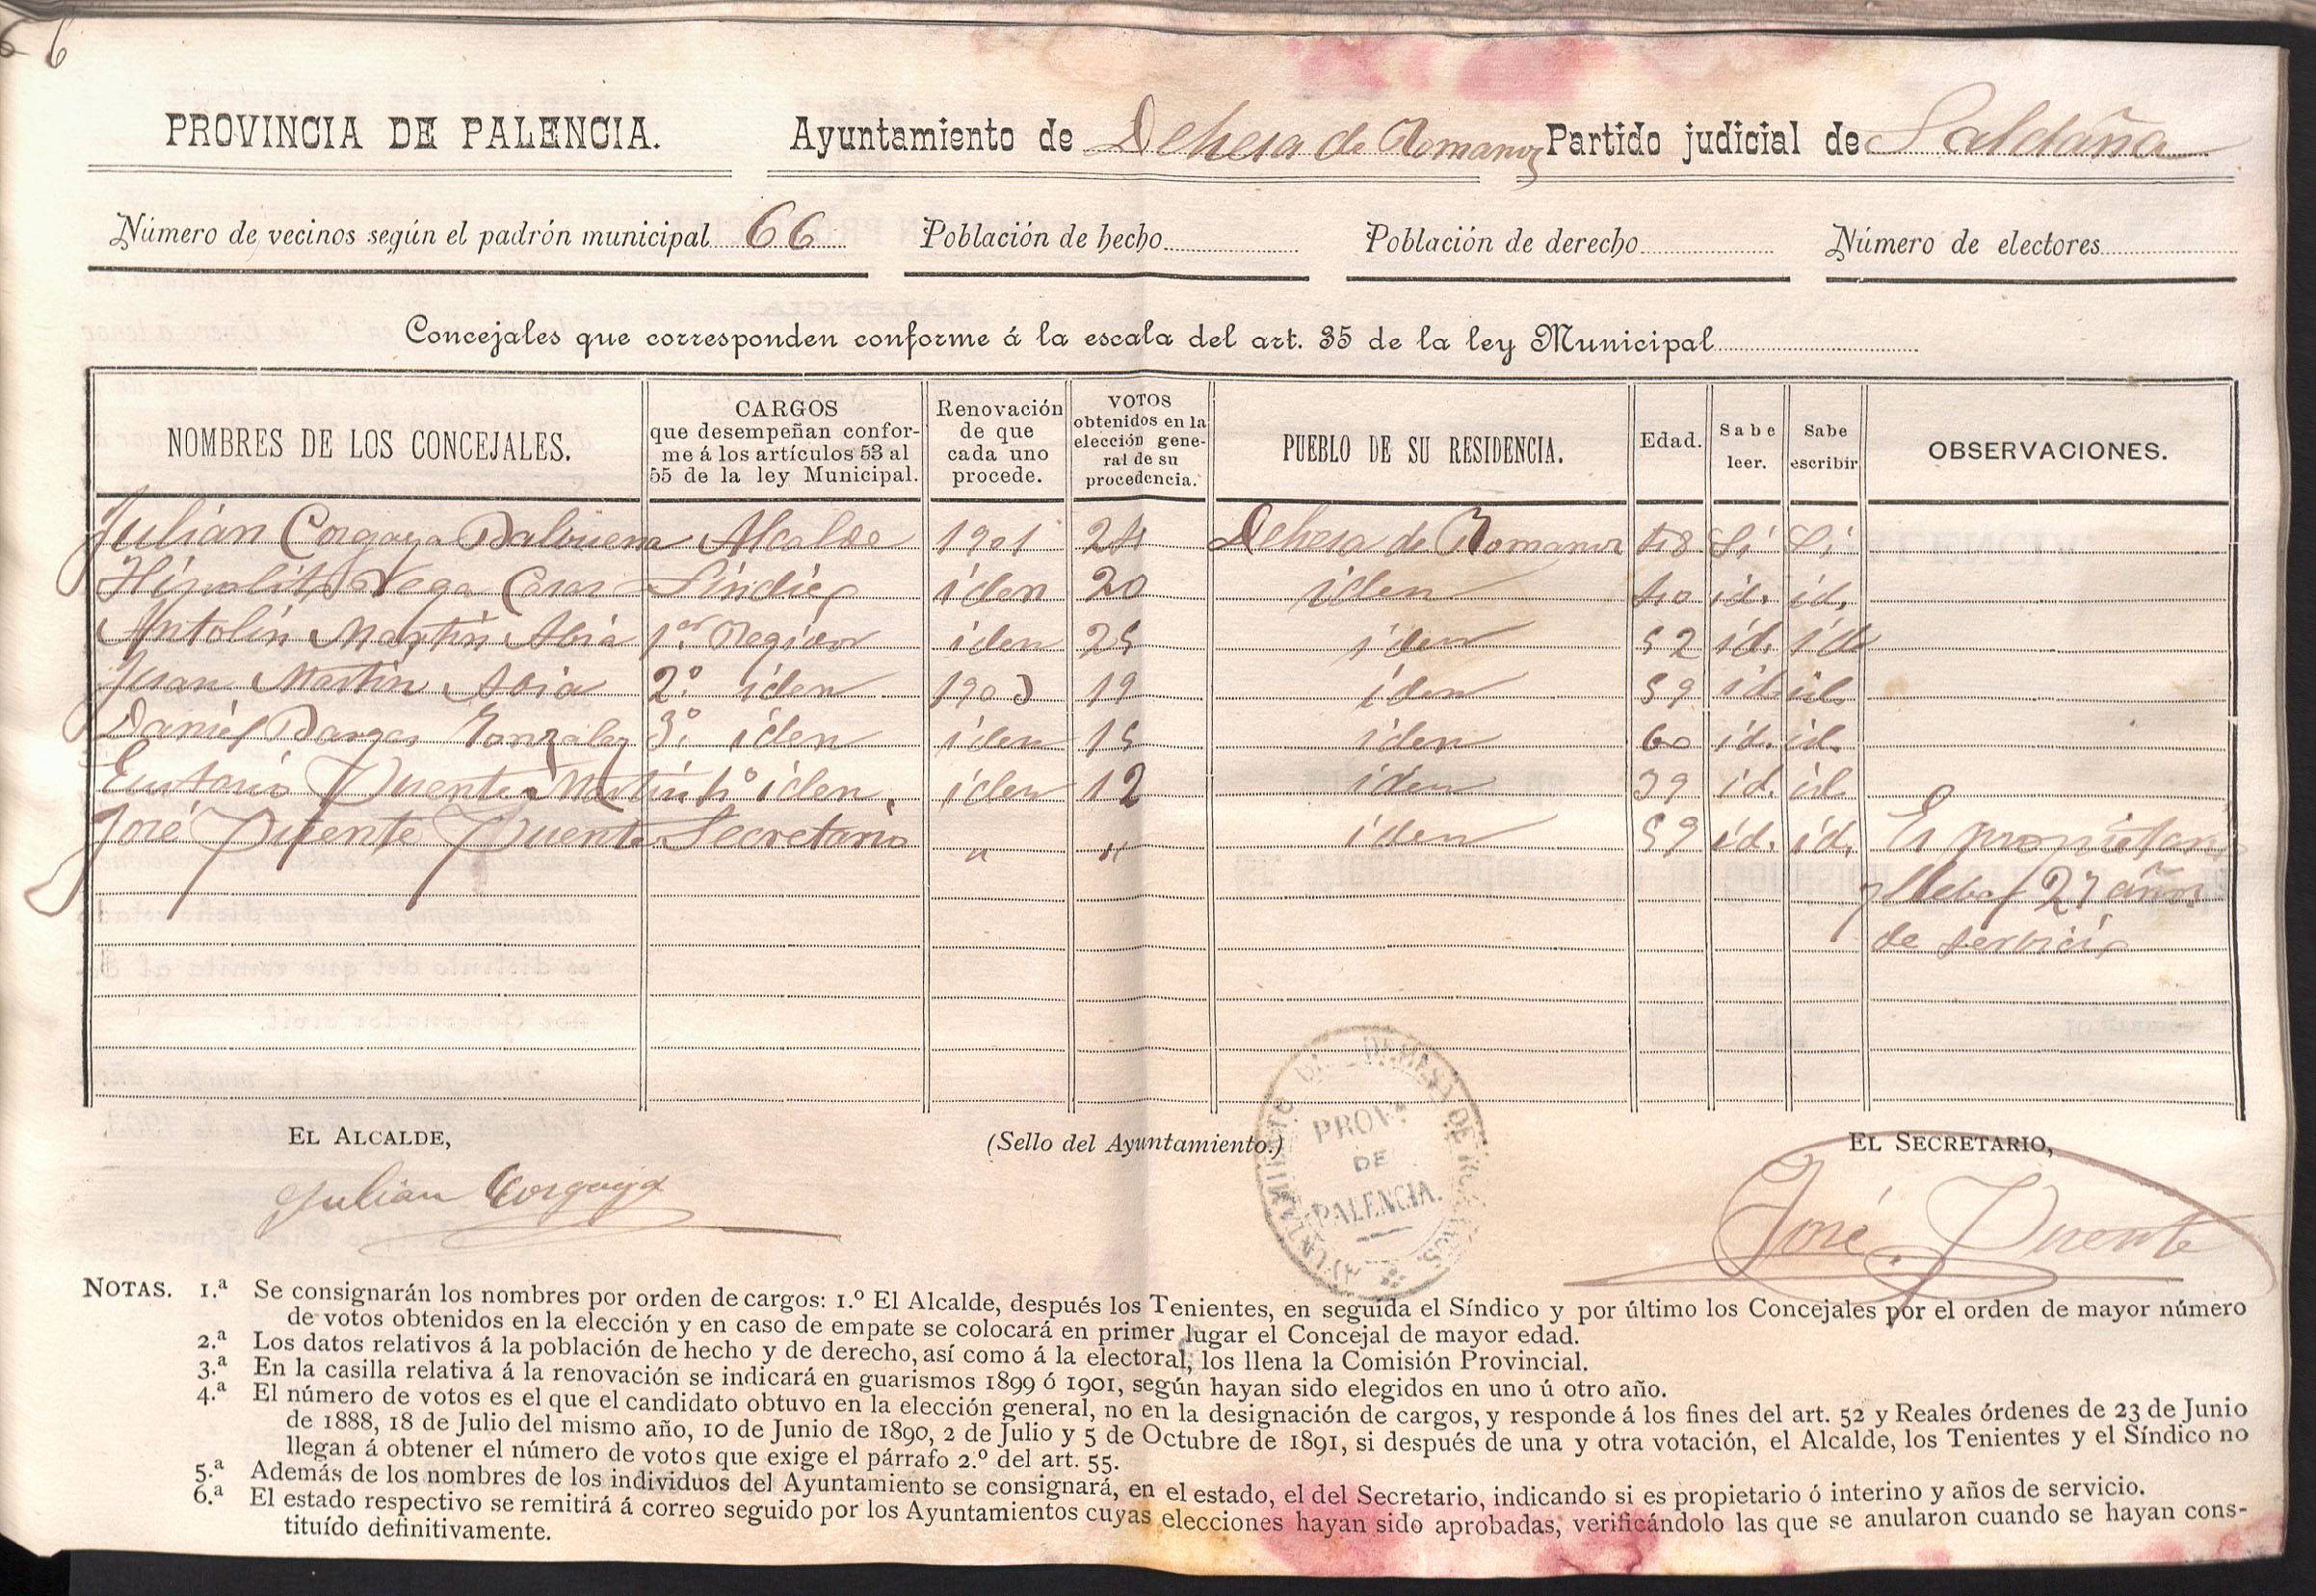 6
PROVINCIA DE PALENCIA. Ayuntamiento de Dehesa de Romanos Partido judicial de Saldaña
Número de vecinos según el padrón municipal 66 Población de hecho Población de derecho Número de electores
Concejales que corresponden conforme á la escala del art. 35 de la ley Municipal
NOMBRES DE LOS CONCEJALES. CARGOS que desempeñan conforme á los artículos 53 al 55 de la ley Municipal. Renovación de que cada uno procede. VOTOS obtenidos en la elección general de su procedencia. PUEBLO DE SU RESIDENCIA. Edad. Sabe leer. Sabe escribir OBSERVACIONES.
Julián Corgaya Balbuena Alcalde 1901 24 Dehesa de Romanos 48 Sí Sí
Hipolito Vega Casas Sindico iden 20 iden 40 id. id.
Antolin Martin Abia 1.er Regidor iden 25 iden 52 id. id
Juan Martin Abia 2.º iden 1903 19 iden 59 id. id.
Daniel Barges Gonzalez 3.º iden iden 15 iden 60 id. id.
Eustasio Puente Martin 4º iden. iden 12 iden 39 id. id.
José Puente Puente Secretario " " iden 59 id. id. Es propietario
y lleba 27 años
de serbicio
EL ALCALDE, (Sello del Ayuntamiento.) EL SECRETARIO,
AYUNTAMIENTO DE DEHESA DE ROMANOS
PROV.ª
DE
PALENCIA.
Julian Corgaya José Puente
NOTAS. 1.ª Se consignarán los nombres por orden de cargos: 1.º El Alcalde, después los Tenientes, en seguida el Síndico y por último los Concejales por el orden de mayor número
de votos obtenidos en la elección y en caso de empate se colocará en primer lugar el Concejal de mayor edad.
2.ª Los datos relativos á la población de hecho y de derecho, así como á la electoral, los llena la Comisión Provincial.
3.ª En la casilla relativa á la renovación se indicará en guarismos 1899 ó 1901, según hayan sido elegidos en uno ú otro año.
4.ª El número de votos es el que el candidato obtuvo en la elección general, no en la designación de cargos, y responde á los fines del art. 52 y Reales órdenes de 23 de Junio
de 1888, 18 de Julio del mismo año, 10 de Junio de 1890, 2 de Julio y 5 de Octubre de 1891, si después de una y otra votación, el Alcalde, los Tenientes y el Síndico no
llegan á obtener el número de votos que exige el párrafo 2.º del art. 55.
5.ª Además de los nombres de los individuos del Ayuntamiento se consignará, en el estado, el del Secretario, indicando si es propietario ó interino y años de servicio.
6.ª El estado respectivo se remitirá á correo seguido por los Ayuntamientos cuyas elecciones hayan sido aprobadas, verificándolo las que se anularon cuando se hayan cons-
tituído definitivamente.